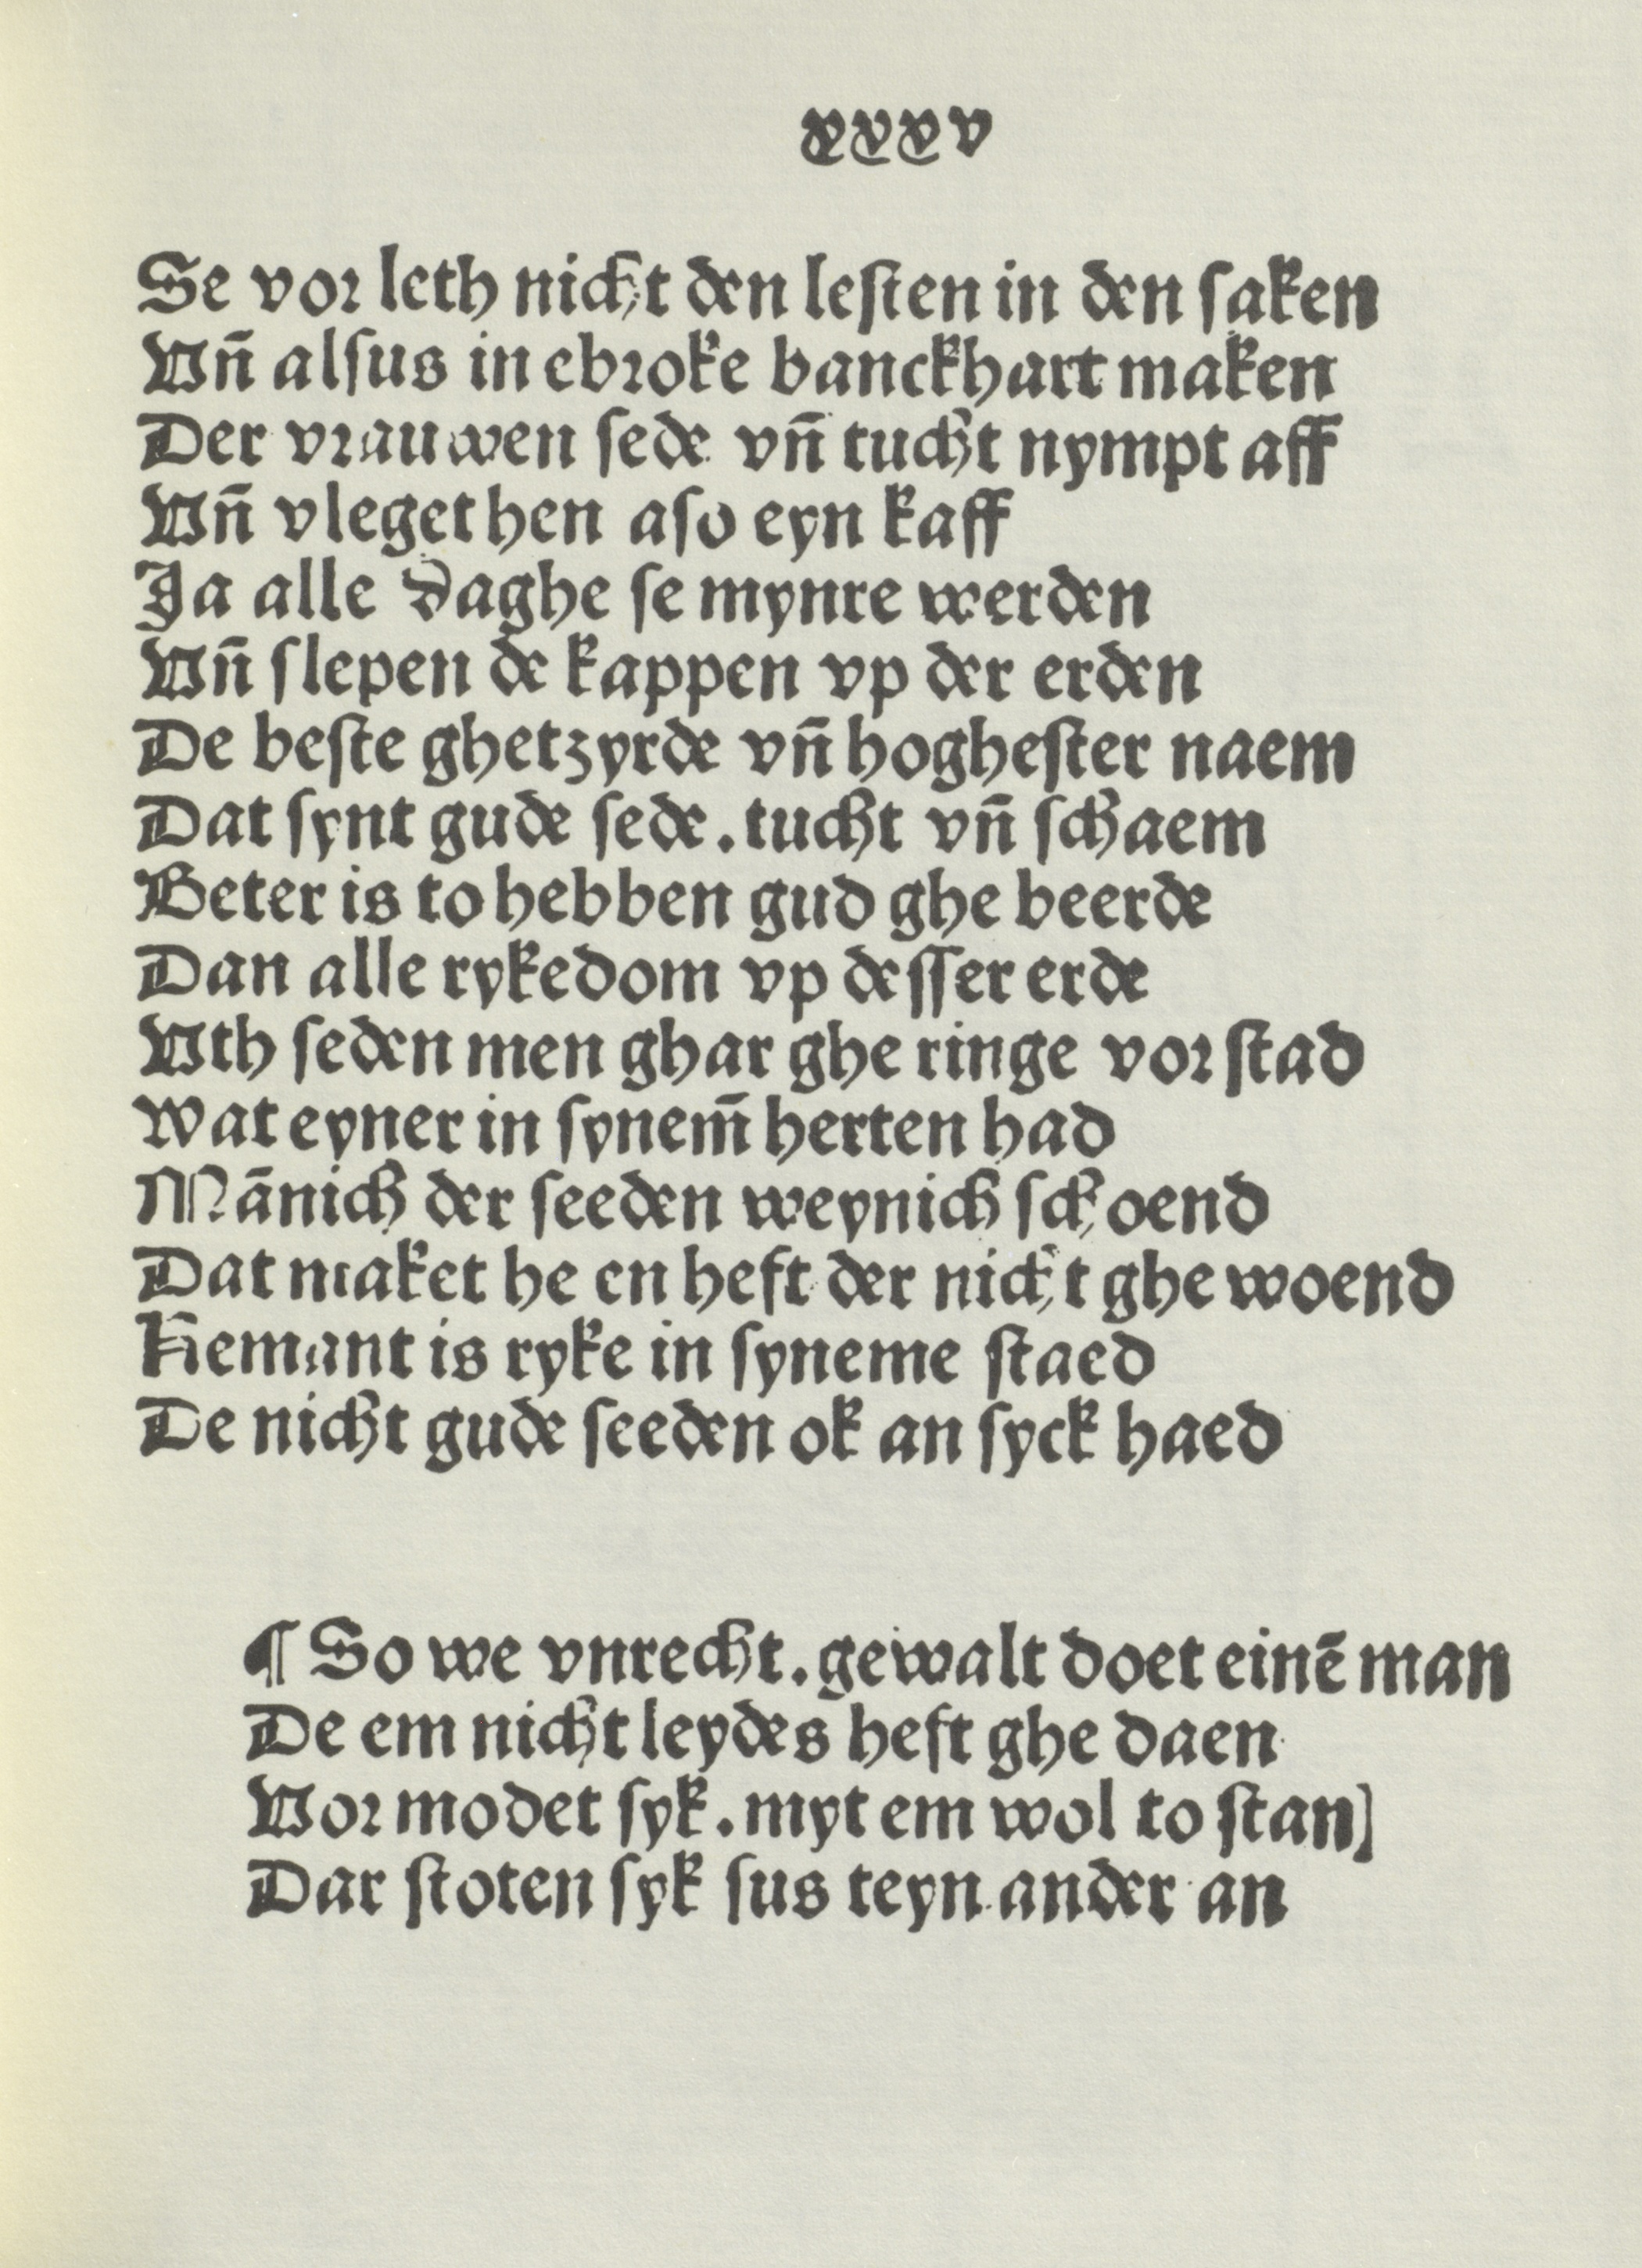 xxxv
Se vor leth nicht den lesten in den saken
Vn̄ alsus in ebroke banckhart maken
Der vrauwen sede vn̄ tucht nympt aff
Vn̄ vleget hen aso eyn kaff
Ja alle daghe se mynre werden
Vn̄ slepen de kappen vp der erden
De beste ghetzyrde vn̄ hoghester naem
Dat synt gude sede. tucht vn̄ schaem
Beter is to hebben gud ghe beerde
Dan alle rykedom vp desser erde
Vth seden men ghar ghe ringe vor stad
Wat eyner in synem̄ herten had
Mānich der seeden weynich schoend
Dat maket he en heft der nicht ghe woend
Nemant is ryke in syneme staed
De nicht gude seeden ok an syck haed
¶ So we vnrecht. gewalt doet einē man
De em nicht leydes heft ghe daen
Vor modet syk. myt em wol to stan]
Dar stoten syk sus teyn ander an